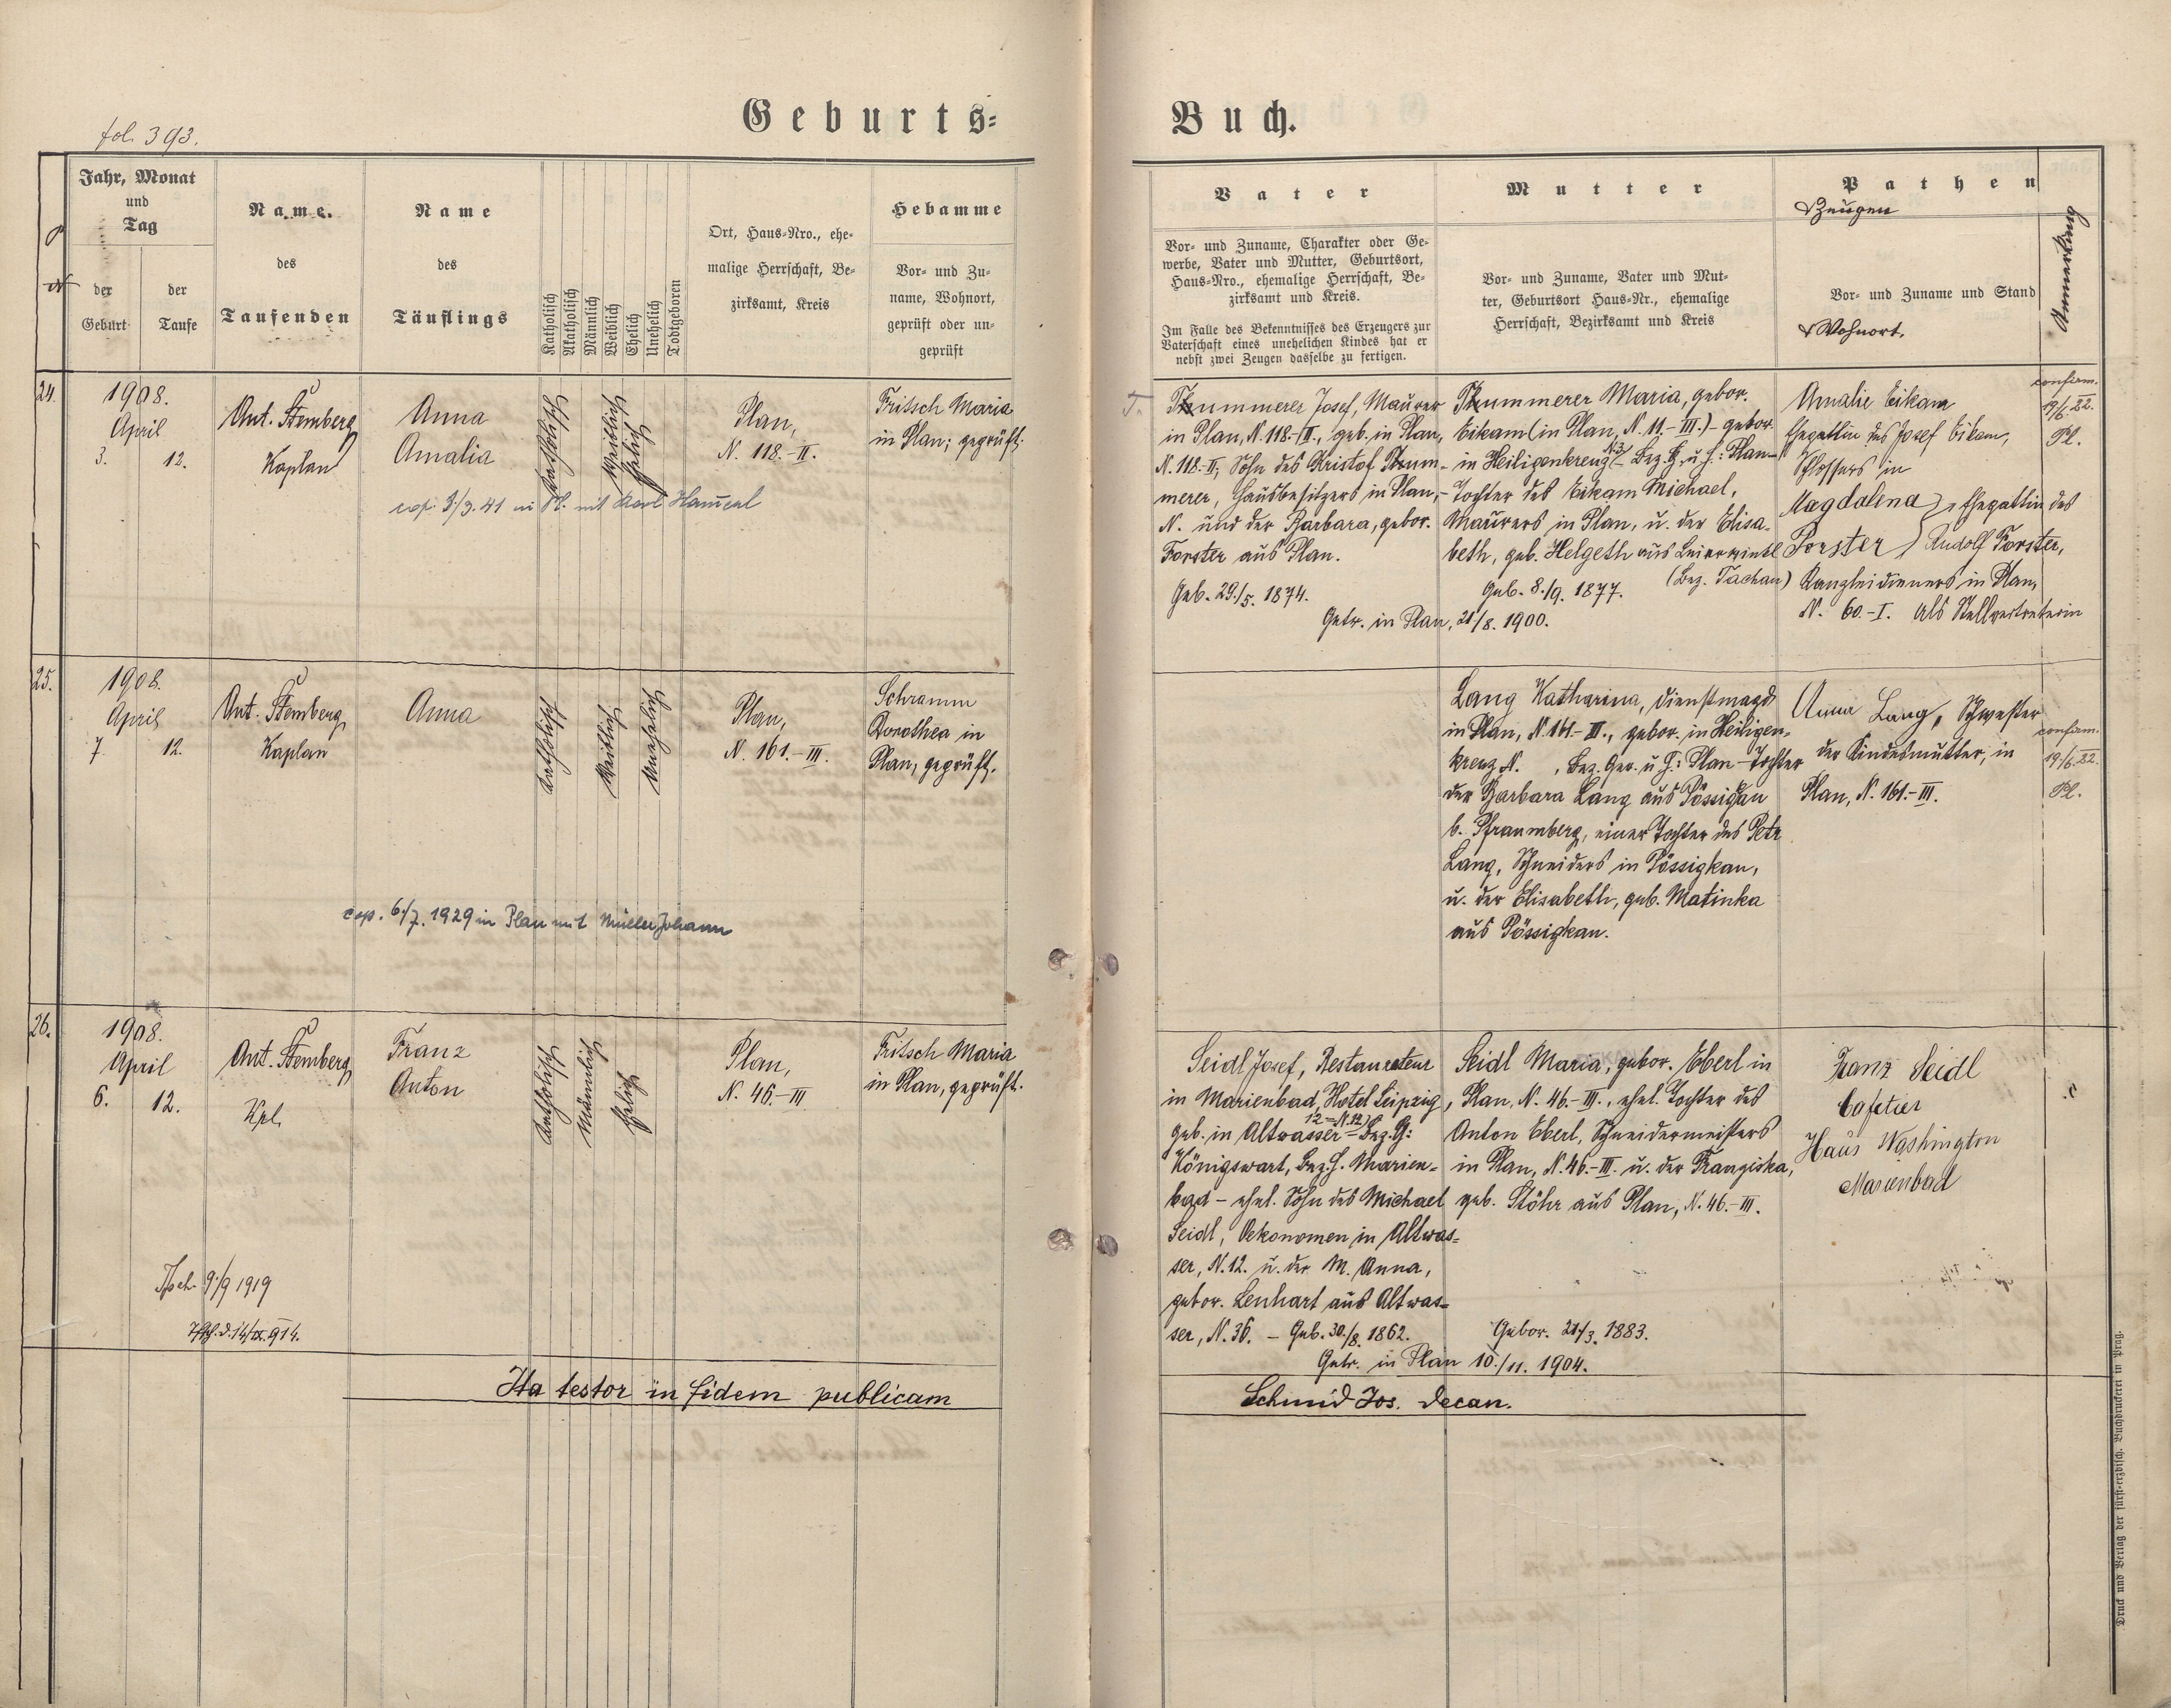 fol. 393.
Geburts=
Buch.
Jahr, Monat
und
Tag
der
Geburt
der
Taufe
Name
des
Taufenden
Name
des
Täuflings
Katholisch
Akatholisch
Männlich
Weiblich
Ehelich
Unehelich
Todtgeboren
Ort, Haus-Nro., ehe-
malige Herrschaft, Be-
zirksamt, Kreis
Hebamme
Vor- und Zu-
name, Wohnort,
geprüft oder un-
geprüft
Vater
Vor- und Zuname, Charakter oder Ge-
werbe, Vater und Mutter, Geburtsort,
Haus-Nro., ehemalige Herrschaft, Be-
zirksamt und Kreis.
Im Falle des Bekenntnisses des Erzeugers zur
Vaterschaft eines unehelichen Kindes hat er
nebst zwei Zeugen dasselbe zu fertigen.
Mutter
Vor- und Zuname, Vater und Mut-
ter, Geburtsort Haus-Nr., ehemalige
Herrschaft, Bezirksamt und Kreis
Pathen
& Zeugen
Vor- und Zuname und Stand
& Wohnort.
Anmerkung
24.
1908.
April
3. 12.
Ant. Stemberg
Kaplan
Anna
Amalia
Katholisch
Weiblich
Ehelich
Plan,
N. 118.-II.
Fritsch Maria
in Plan; geprüft.
cop. 3/3.41 in Pl. mit Karl
T.
Thummerer Josef, Maurer
in Plan, N. 118.-II., geb. in Plan,
N. 118-II, Sohn des Kristof Thum-
merer, Hausbesitzers in Plan,-
N. und der Barbara, gebor.
Forster aus Plan.
Geb. 29./5. 1874.
Thummerer Maria, gebor.
Eikam (in Plan, N. 11.-III.) - gebor.
in Heiligenkreuz N3 - Bez. G. u. H: Plan-
Tochter des Eikam Michael,
Maurers in Plan, u. der Elisa-
beth, geb. Helgeth aus
(Bez. Tachau)
Geb. 8./9. 1877.
Getr. in Plan, 21/8. 1900.
Amalie Eikam
Ehegattin des Josef Eikam,
Schlossers in
Magdalena } Ehegattin des
Forster } Rudolf Forster,
Kanzleidieners in Plan,
N. 60.-I. als Stellvertreterin
confirm.
19/6.22.
Pl.
25.
1908.
April
7. 12.
Ant. Stemberg
Kaplan
Anna
Katholisch
Weiblich
Unehelich
Plan,
N. 161.-III.
Schramm
Dorothea in
Plan, geprüft.
cop. 6/7. 1929 in Plan mit Müller Johann
Lang Katharina, Dienstmagd
in Plan, N. 161.-III., gebor. in Heiligen-
kreuz N. , Bez. Ger. u. H: Plan - Tochter
der Barbara Lang aus Pössigkau
b. Pfraumberg, einer Tochter des Petr
Lang, Schneiders in Pössigkau,
u. der Elisabeth, geb. Matinka
aus Pössigkau.
Anna Lang, Schwester
der Kindesmutter, in
Plan, N. 161.-III.
confirm.
19./6.22.
Pl.
26.
1908.
April
6. 12.
Ant. Stemberg
Kpl.
Franz
Anton
Katholisch
Männlich
Ehelich
Plan,
N. 46.-III
Fritsch Maria
in Plan, geprüft.
9/9 1919
Seidl Josef, Restaurateur
in Marienbad, Hotel Leipzig,
geb. in Altwasser N. 12 - Bez. G:
Königswart, Bez. H. Marien-
bad - ehel. Sohn des Michael
Seidl, Oekonomen in Altwas-
ser, N. 12. u. der M. Anna,
gebor. Lenhart aus Altwas-
ser, N. 36. - Geb. 30./8. 1862.
Seidl Maria, gebor. Eberl in
Plan, N. 46.-III., ehel. Tochter des
Anton Eberl, Schneidermeisters
in Plan, N. 46.-III. u. der Franziska,
geb. Stöhr aus Plan, N. 46.-III.
Gebor. 21./3. 1883.
Getr. in Plan 10./11. 1904.
Franz Seidl
Cafetier
Haus Washington
Marienbad
Ita testor in fidem publicam
Schmid Jos. Decan.
Druck und Verlag der fürst-erzbisch. Buchdruckerei in Prag.